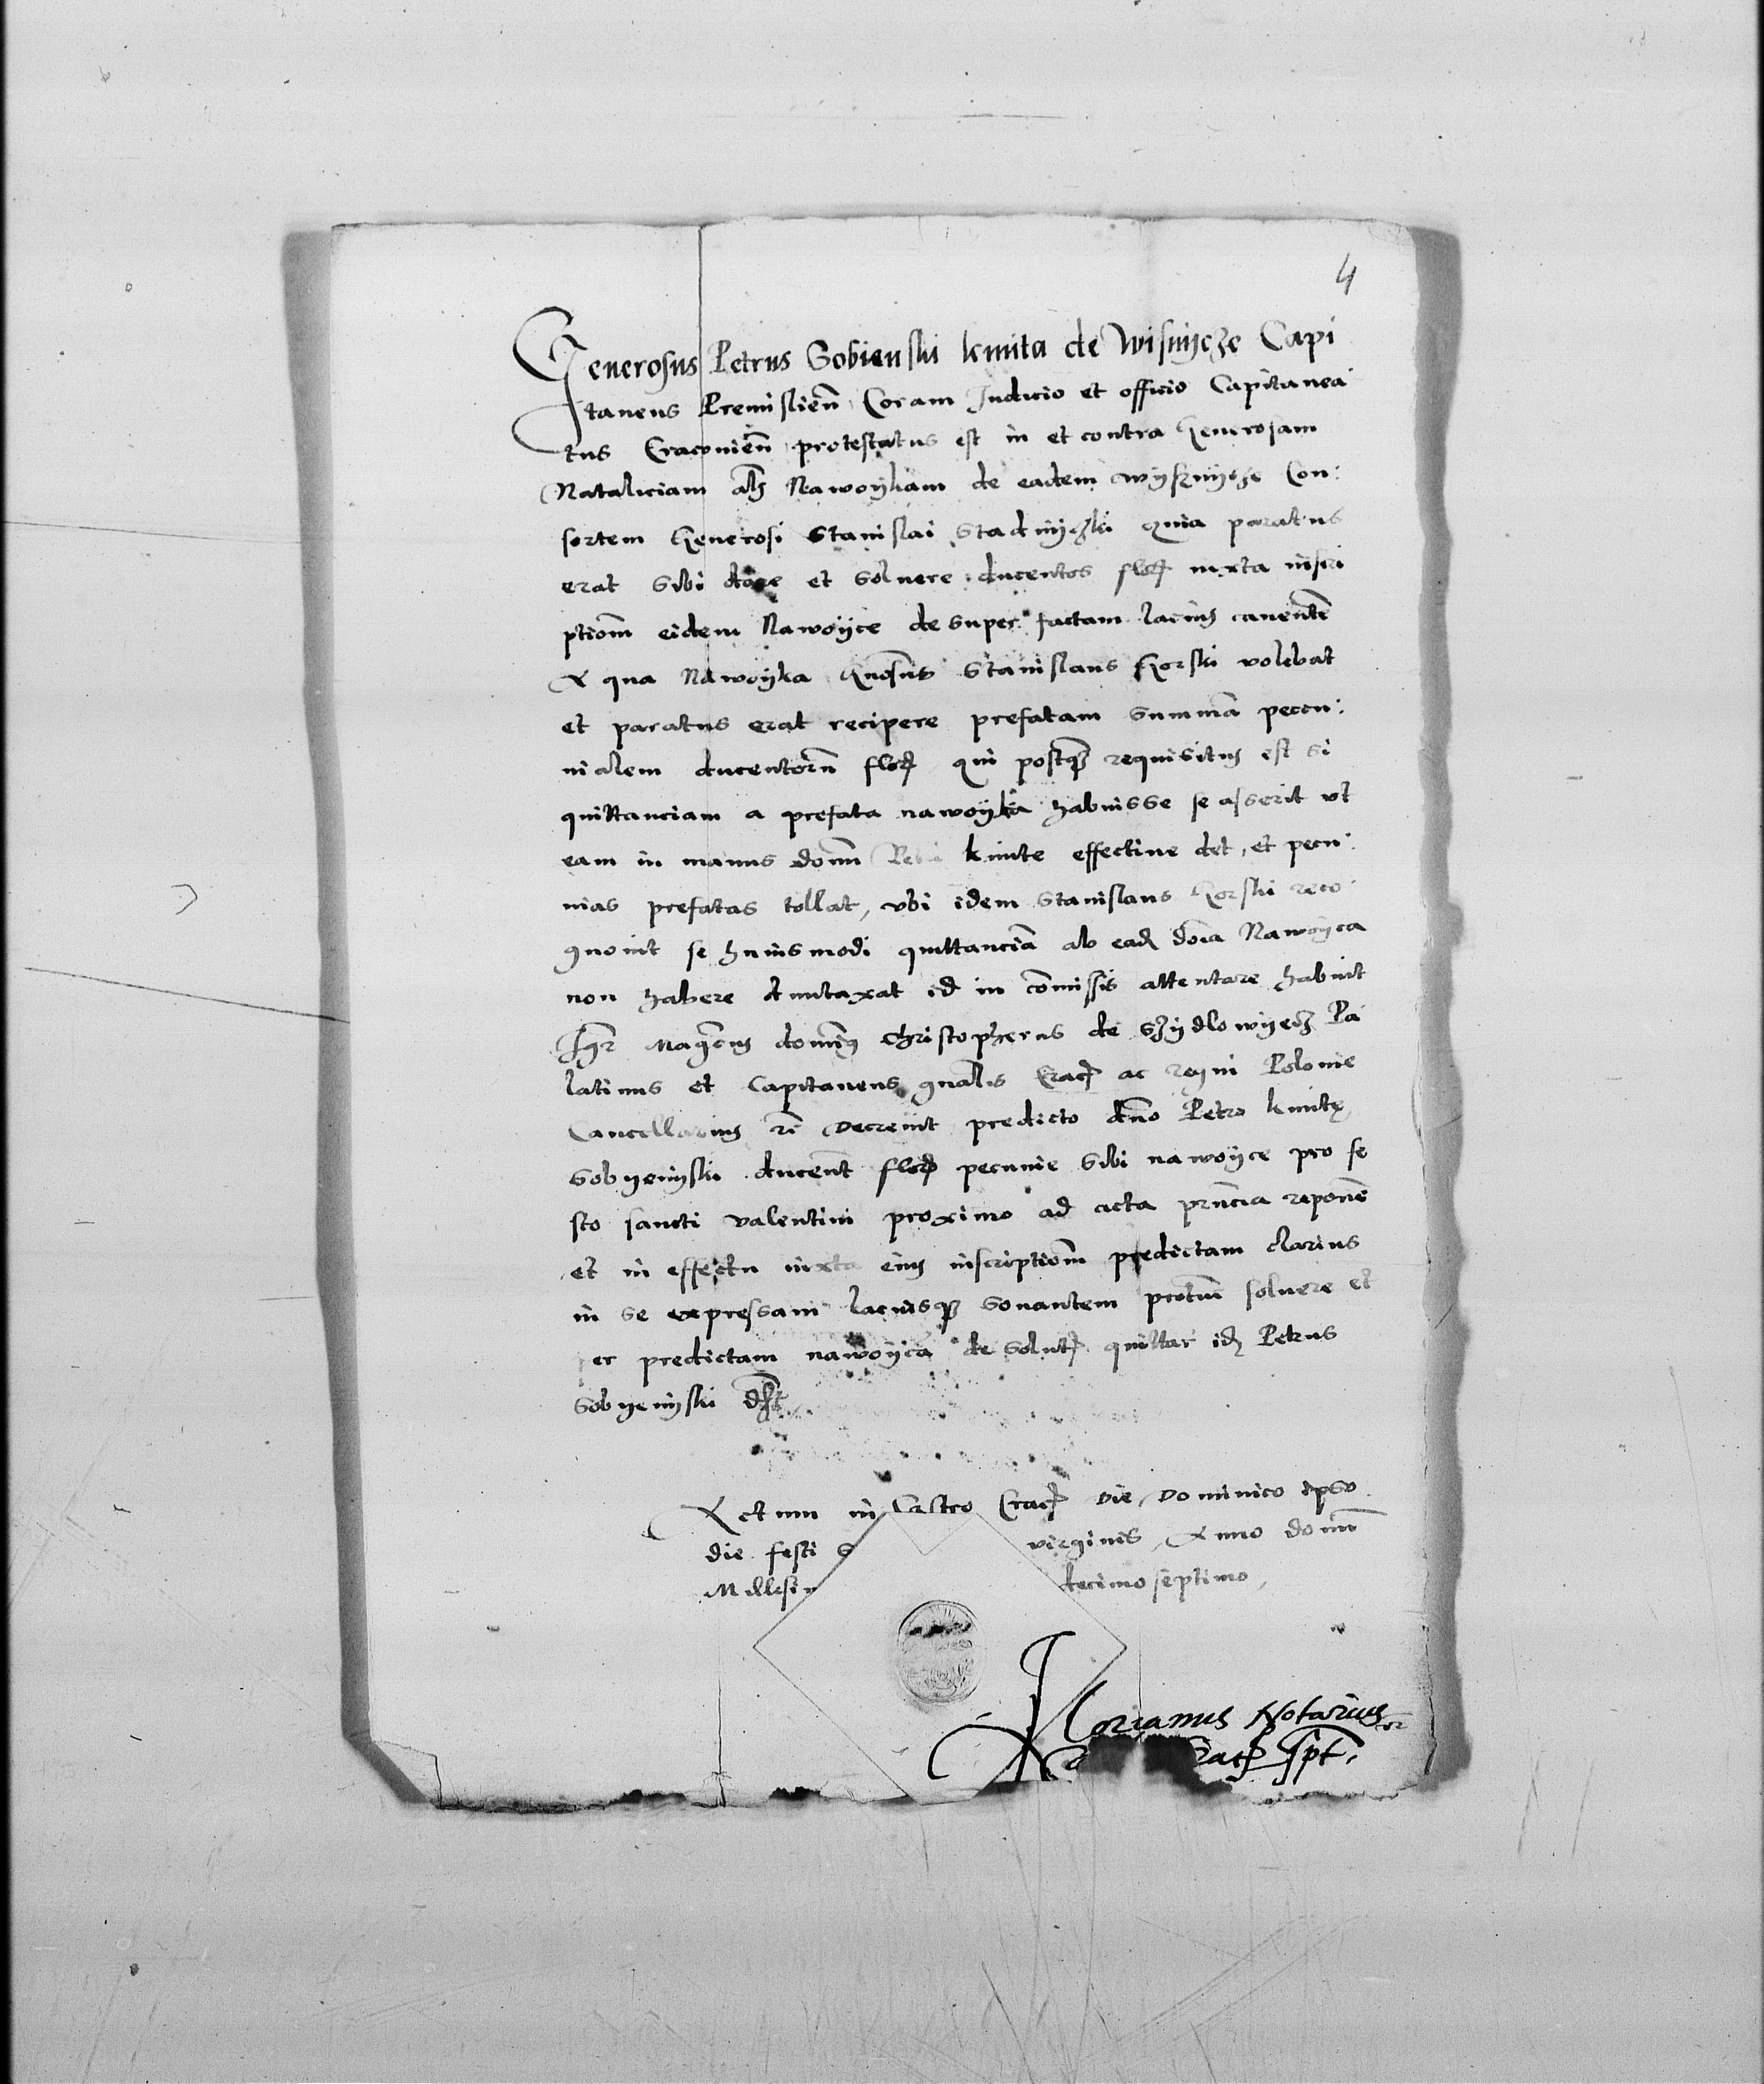 4
Generosus Petrus Sobienski kmita de Wisnycze Capi
taneus Premislien̄ Coram Judicio et officio Capitanea
tus Cracouien̄ protestatus est in et contra Generosam
Nataliciam als Nawoykam de eadem Wysznycze Con:
sortem Generosi Stanislai Stadnyczki quia paratus
erat sibi dare et soluere ducentos flor iuxta inscri
ptiom̄ eidem Nawoyce desuper factam lacius cauentē
A qua Nawoyka Gn̄osus Stanislaus Gorski volebat
et paratus erat recipere prefatam summā peccu:
nialem ducentorū flor qui postq̄ requisitus est si
quittanciam a prefata nawoyka habuisse se asserit vt
eam in manus domī Petri kmite effectiue det, et pecu:
nias prefatas tollat, vbi idem Stanislaus Gorski reco
gnouit se huiusmodi quittanciā ab ead doīa Nawoyca
non habere duntaxat id in cōmissis attentare habuit
Igr̄ Mag̅cus domin9 Christopherus de Szydlowyecz Pa
latinus et Capitaneus gn̄alis Crac ac regni Polonie
Cancellarius rē Decreuit predicto dn̄o Petro kmitę
Sobyenyski ducent̄ flor pecunie sibi nawoyce pro fe
sto sancti valentini proximo ad acta pn̄cia reponē
et in effectu iuxta eius inscriptiom̄ predictam clarius
in se expressam laciusq̄ sonantem soluere et
per predictam nawoycā de solut quittar id Petrus
Sobyenyski
Actum in Castro Crac Die Dominico ipso
die festi S virginis, Anno domī
Millesi decimoseptimo,
Florianus Notarius
Crac sspt.